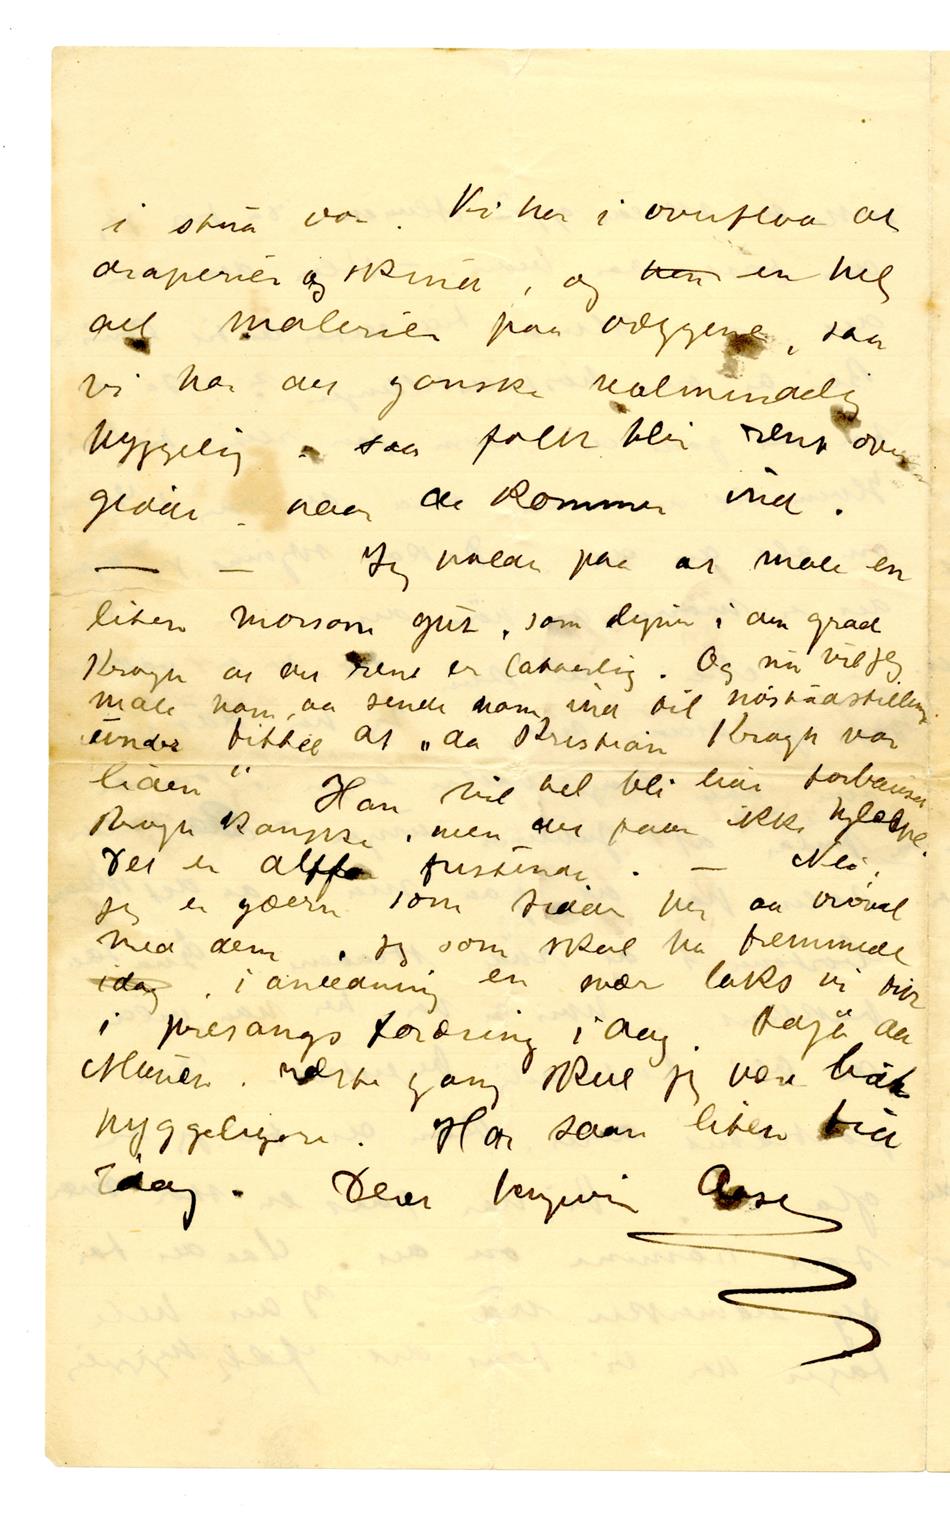 i stua vor. Vi har i overflod at
draperier og skind, og <del>hen</del> en hel
del malerier paa væggene, saa
vi har det ganske ualmindelig
hyggelig. saa folk bli rent over
givde, naar de kommer ind.
— — Jeg holder paa at male en
liten morsom gut, som ligner i den grad
Krogh at det rent er latterlig. Og nu vil jeg
male ham, aa sende ham ind til høstudstilling
under tittel af „da Kristian Krogh var
liden" Han vil vel bli litt forbauset
Krogh kanske, men det faar ikke hjelpe.
Det er altfor fristende. — Nei,
jeg er gæern som sidder her aa vrøvl
med dem, jeg som skal ha fremmede
<del>idag</del>, i anledning en svær laks vi fik
i presangs foræring idag. Adjø da
Munch. næste gang skal jeg være litt
hyggeligere. Har saan liten tid
idag. Deres hengivne Aase